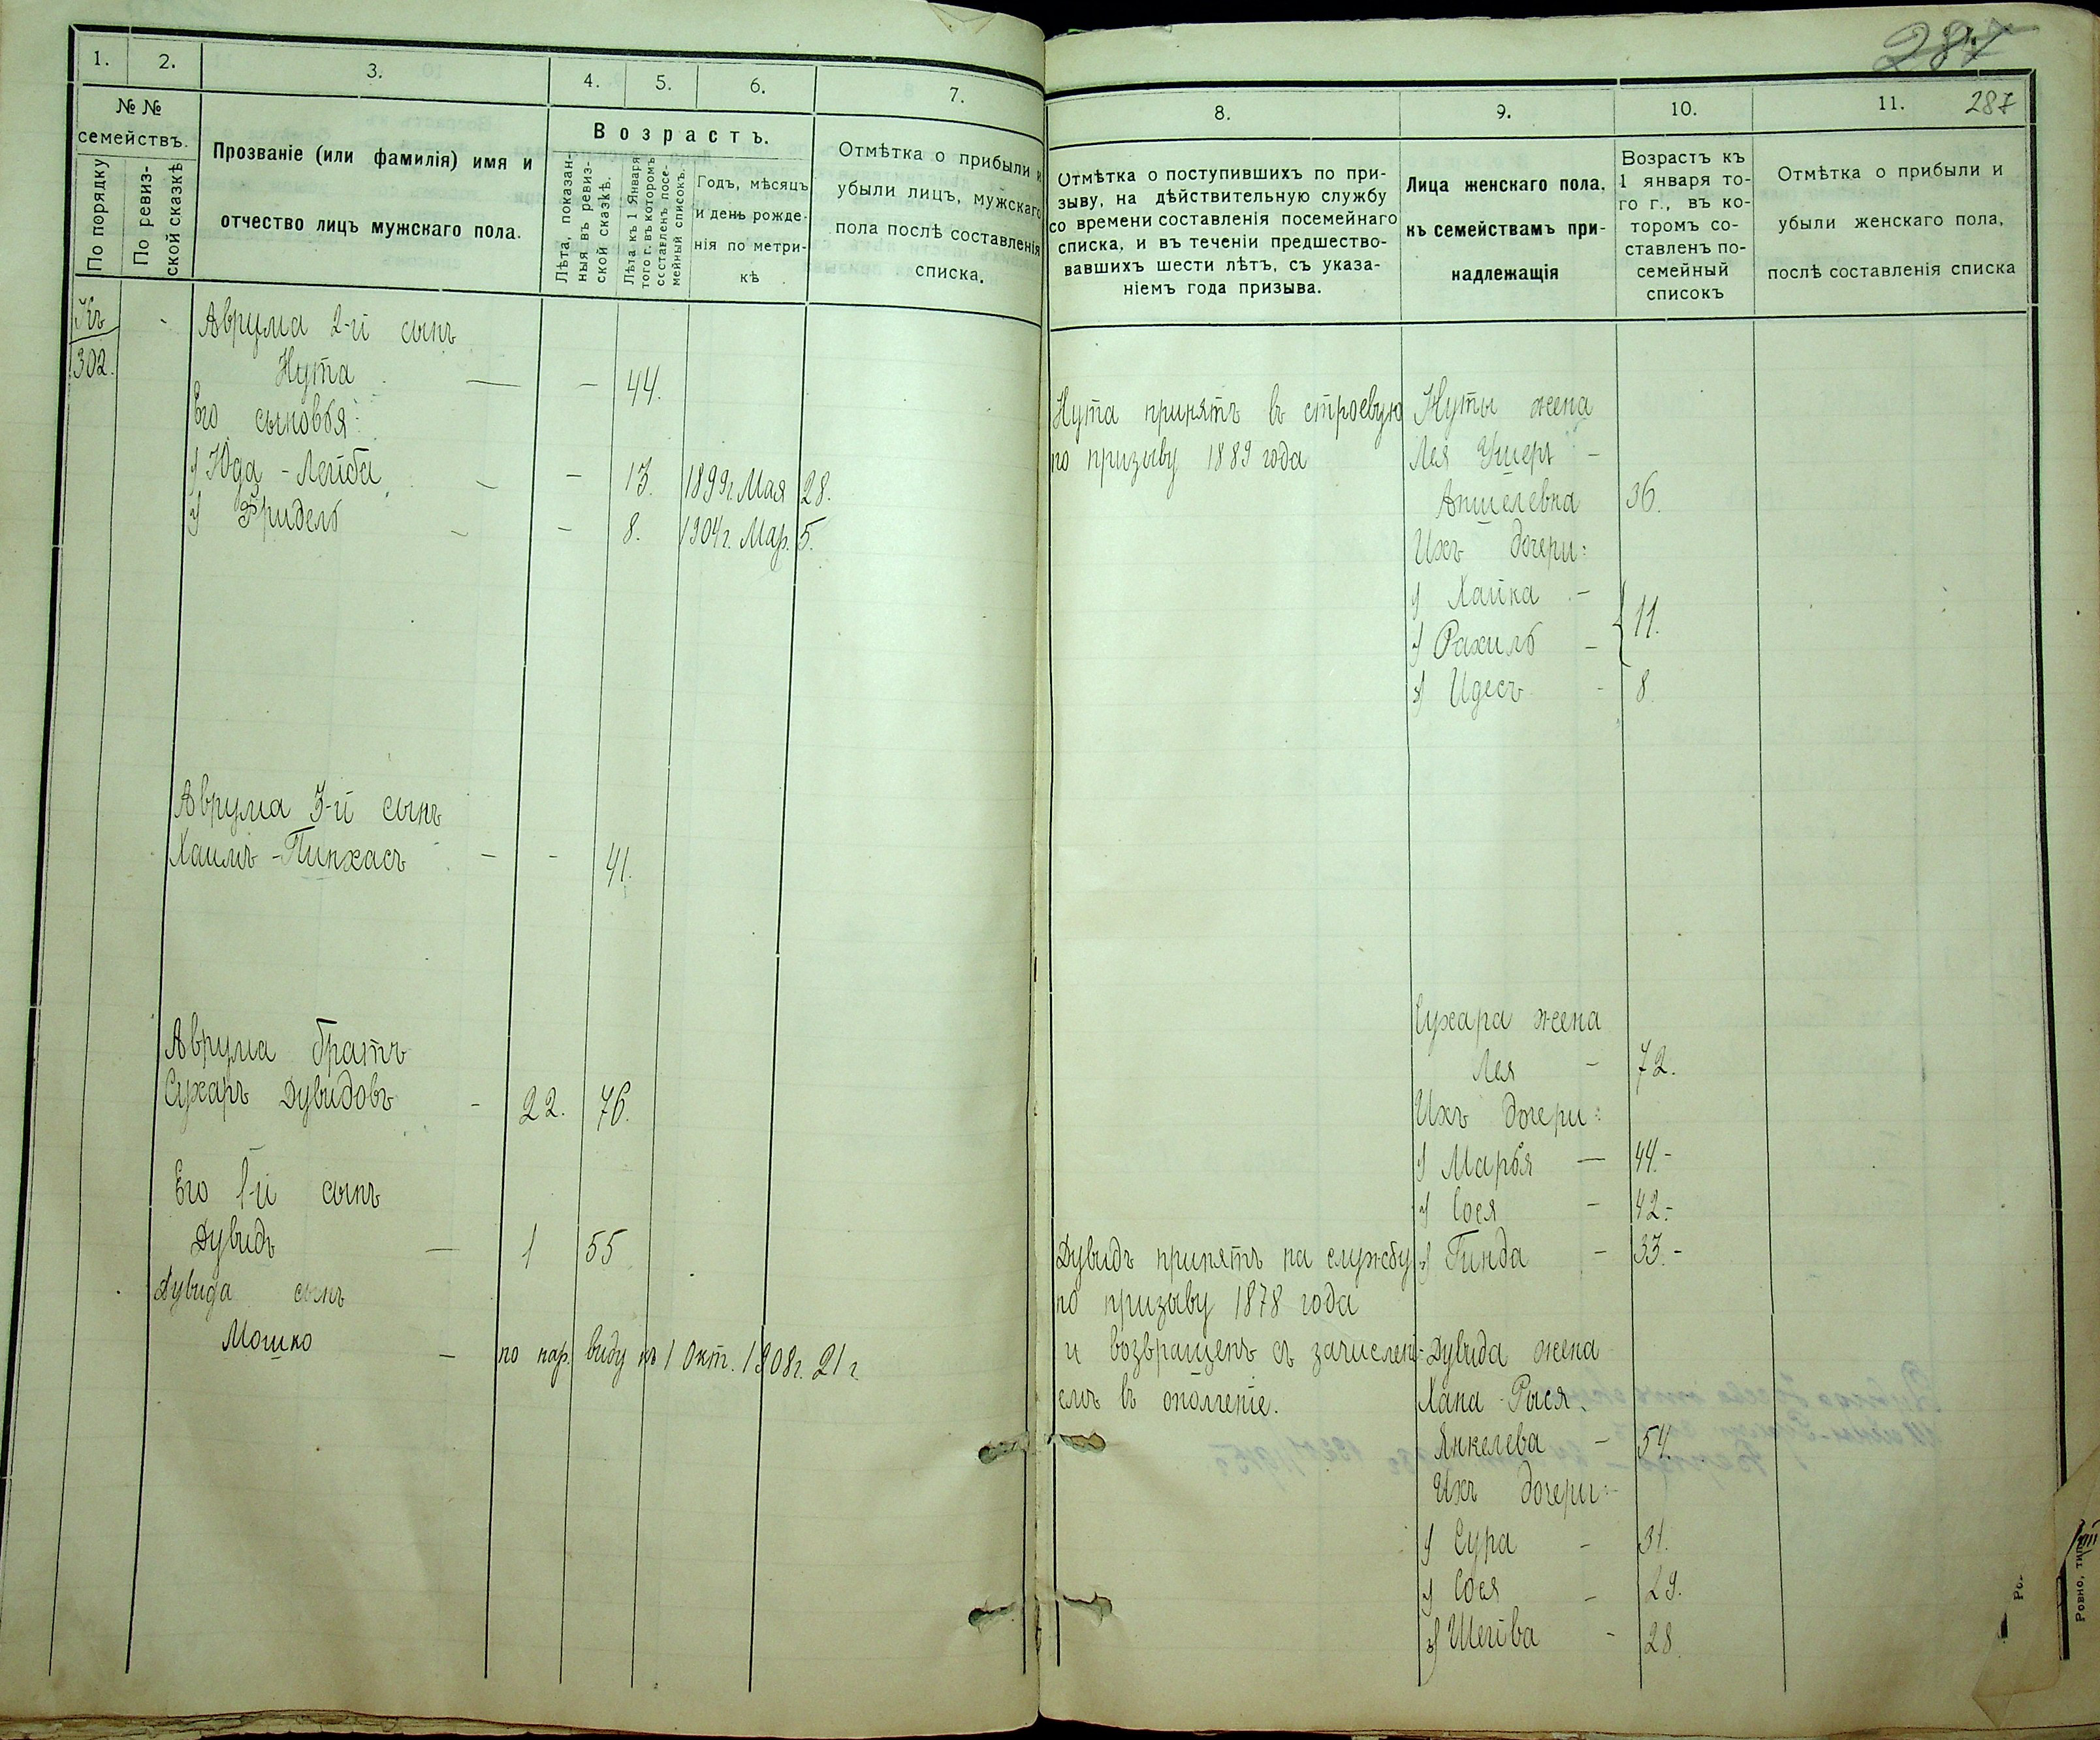 1. 2. 3. 4. 5. 6. 7.
№ №
семействъ.
По порядку
По ревиз-
ской сказкѣ
Прозваніе (или фамилія) имя и
отчество лицъ мужскаго пола.
Возрастъ.
Лѣта, показан-
ныя въ ревиз-
ской сказкѣ.
Лѣта къ 1 Января
того г. въ которомъ
составленъ посе-
мейный списокъ.
Годъ, мѣсяцъ
и день рожде-
нія по метри-
кѣ
Отмѣтка о прибыли и
убыли лицъ, мужскаго
пола послѣ составленія
списка.
Къ
302.
Аврума 2-й сынъ
Нута — — 44.
Его сыновья:
1) Юда-Лейба - — 13. 1899г. Мая 28.
2) Фридель - — 8. 1904г. Мар. 5.
Аврума 3-й сынъ
Хаимъ-Пинхасъ — - 41.
Аврума братъ
Сухаръ Дувидовъ - 22. 76.
Его 1-й сынъ
Дувидъ — 1 55
Дувида сынъ
Мошко — по нар. виду къ 1 Окт. 1908г. 21 г.
287
8. 9. 10. 11. 287
Отмѣтка о поступившихъ по при-
зыву, на дѣйствительную службу
со времени составленія посемейнаго
списка, и въ теченіи предшество-
вавшихъ шести лѣтъ, съ указа-
ніемъ года призыва.
Лица женскаго пола,
къ семействамъ при-
надлежащія
Возрастъ къ
1 января то-
го г., въ ко-
торомъ со-
ставленъ по-
семейный
списокъ
Отмѣтка о прибыли и
убыли женскаго пола,
послѣ составленія списка
Нута принятъ въ строевую
по призыву 1889 года
Нуты жена
Лея Ушеръ -
Аншелевна 36.
Ихъ дочери:
1) Хайка -
2) Рахиль - 11.
3) Идесъ - 8.
Сухара жена
Лея - 72.
Ихъ дочери:
1) Марья — 44.-
2) Сося - 42.-
3) Гинда - 33.-
Дувидъ принятъ на службу
по призыву 1878 года
и возвращенъ съ зачислені-
емъ въ ополченіе.
Дувида жена
Хана-Рыся
Янкелева - 54.
Ихъ дочери:
1) Сура - 31.
2) Сося - 29.
3) Шейва - 28.
Ровно, тип.